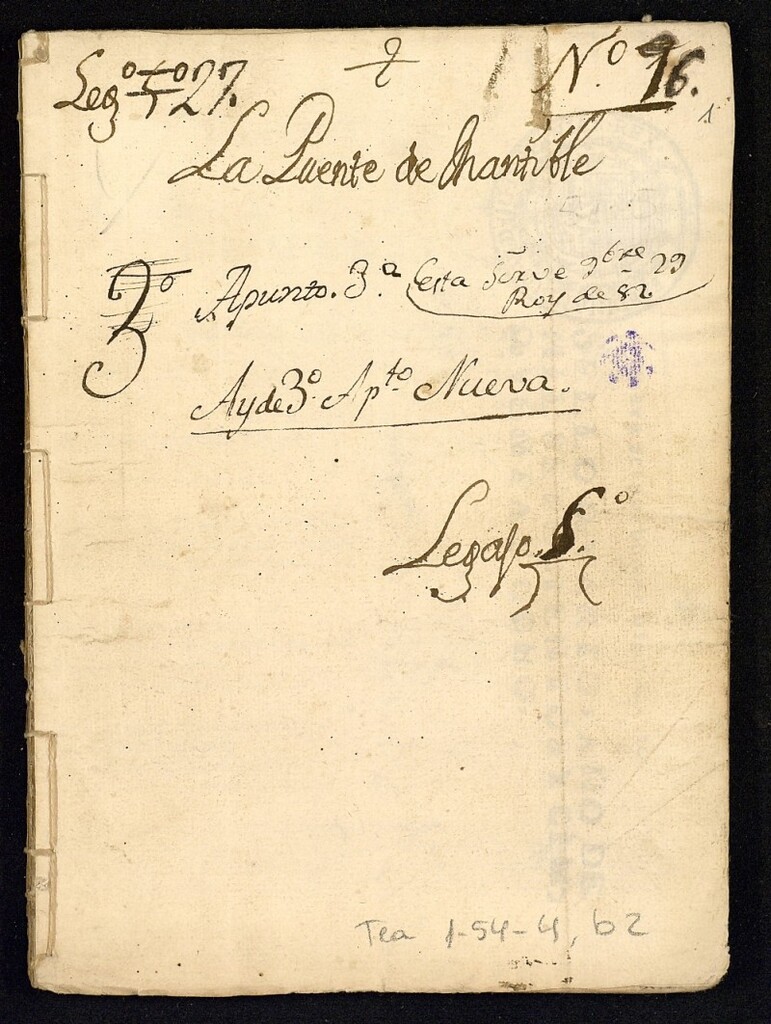 Legº 5º 27.
Nº 16.
1
La Puente de Mantible
3º Apunto. 3ª Esta Sirve 9bre 29
Roy de 82
Ay de 3º Apto Nueva.
Legajo.
Tea 1-54-4, b2